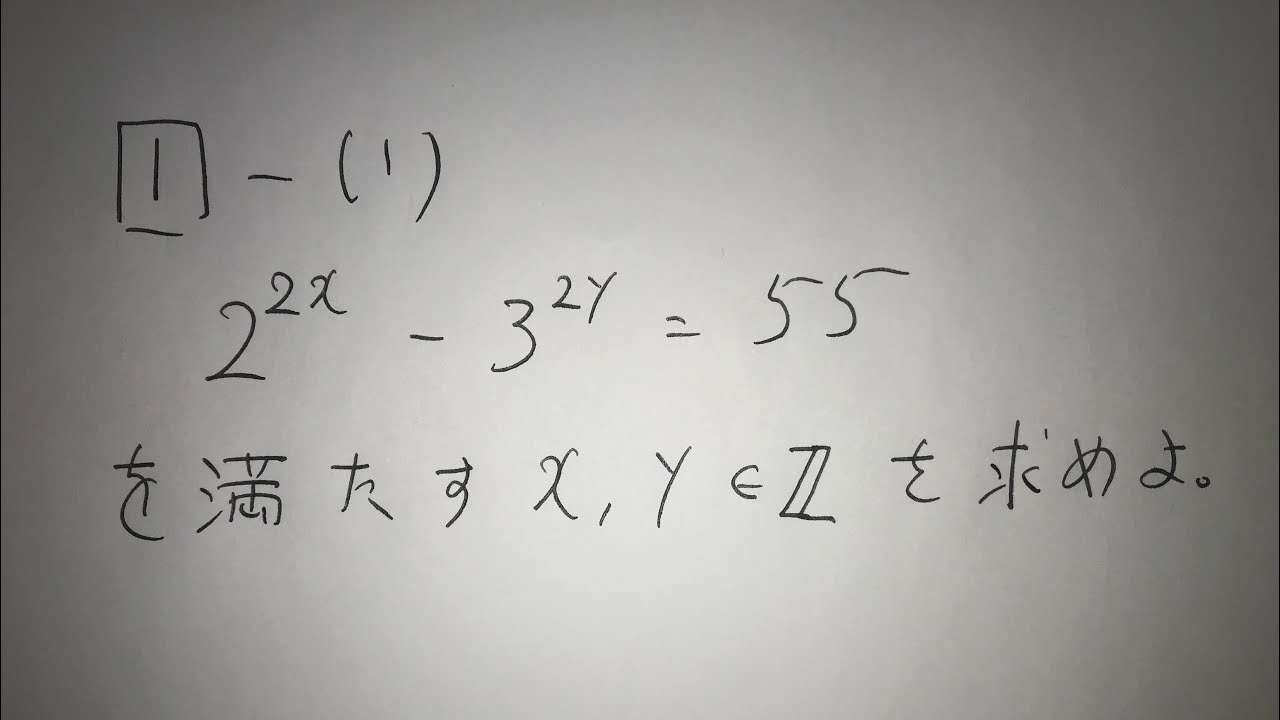 1 - (1)
2^{2x} - 3^{2y} = 55
を満たす x, y ∈ ℤ を求めよ。